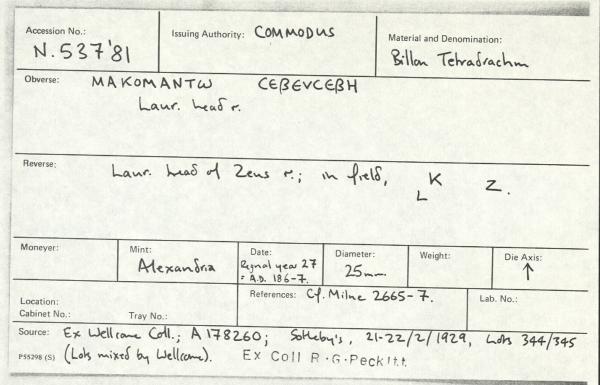 Accession No.: Issuing Authority: COMMODUS Material and Denomination:
N.537'81 Billon Tetradrachm
Obverse: MAKOMANTω CEβEVCEβH
Laur. head r.
Reverse: Laur. head of Zeus r.; in field, L K Z.
Moneyer: Mint: Date: Diameter: Weight: Die Axis:
Alexandria Regnal year 27 25mm. ↑
= A.D. 186-7.
Location: References: Cf. Milne 2665-7. Lab. No.:
Cabinet No.: Tray No.:
Source: Ex Wellcome Coll.; A178260; Sotheby's, 21-22/2/1929, Lots 344/345
P55298 (S) (Lots mixed by Wellcome). Ex Coll R.G.Peckitt.